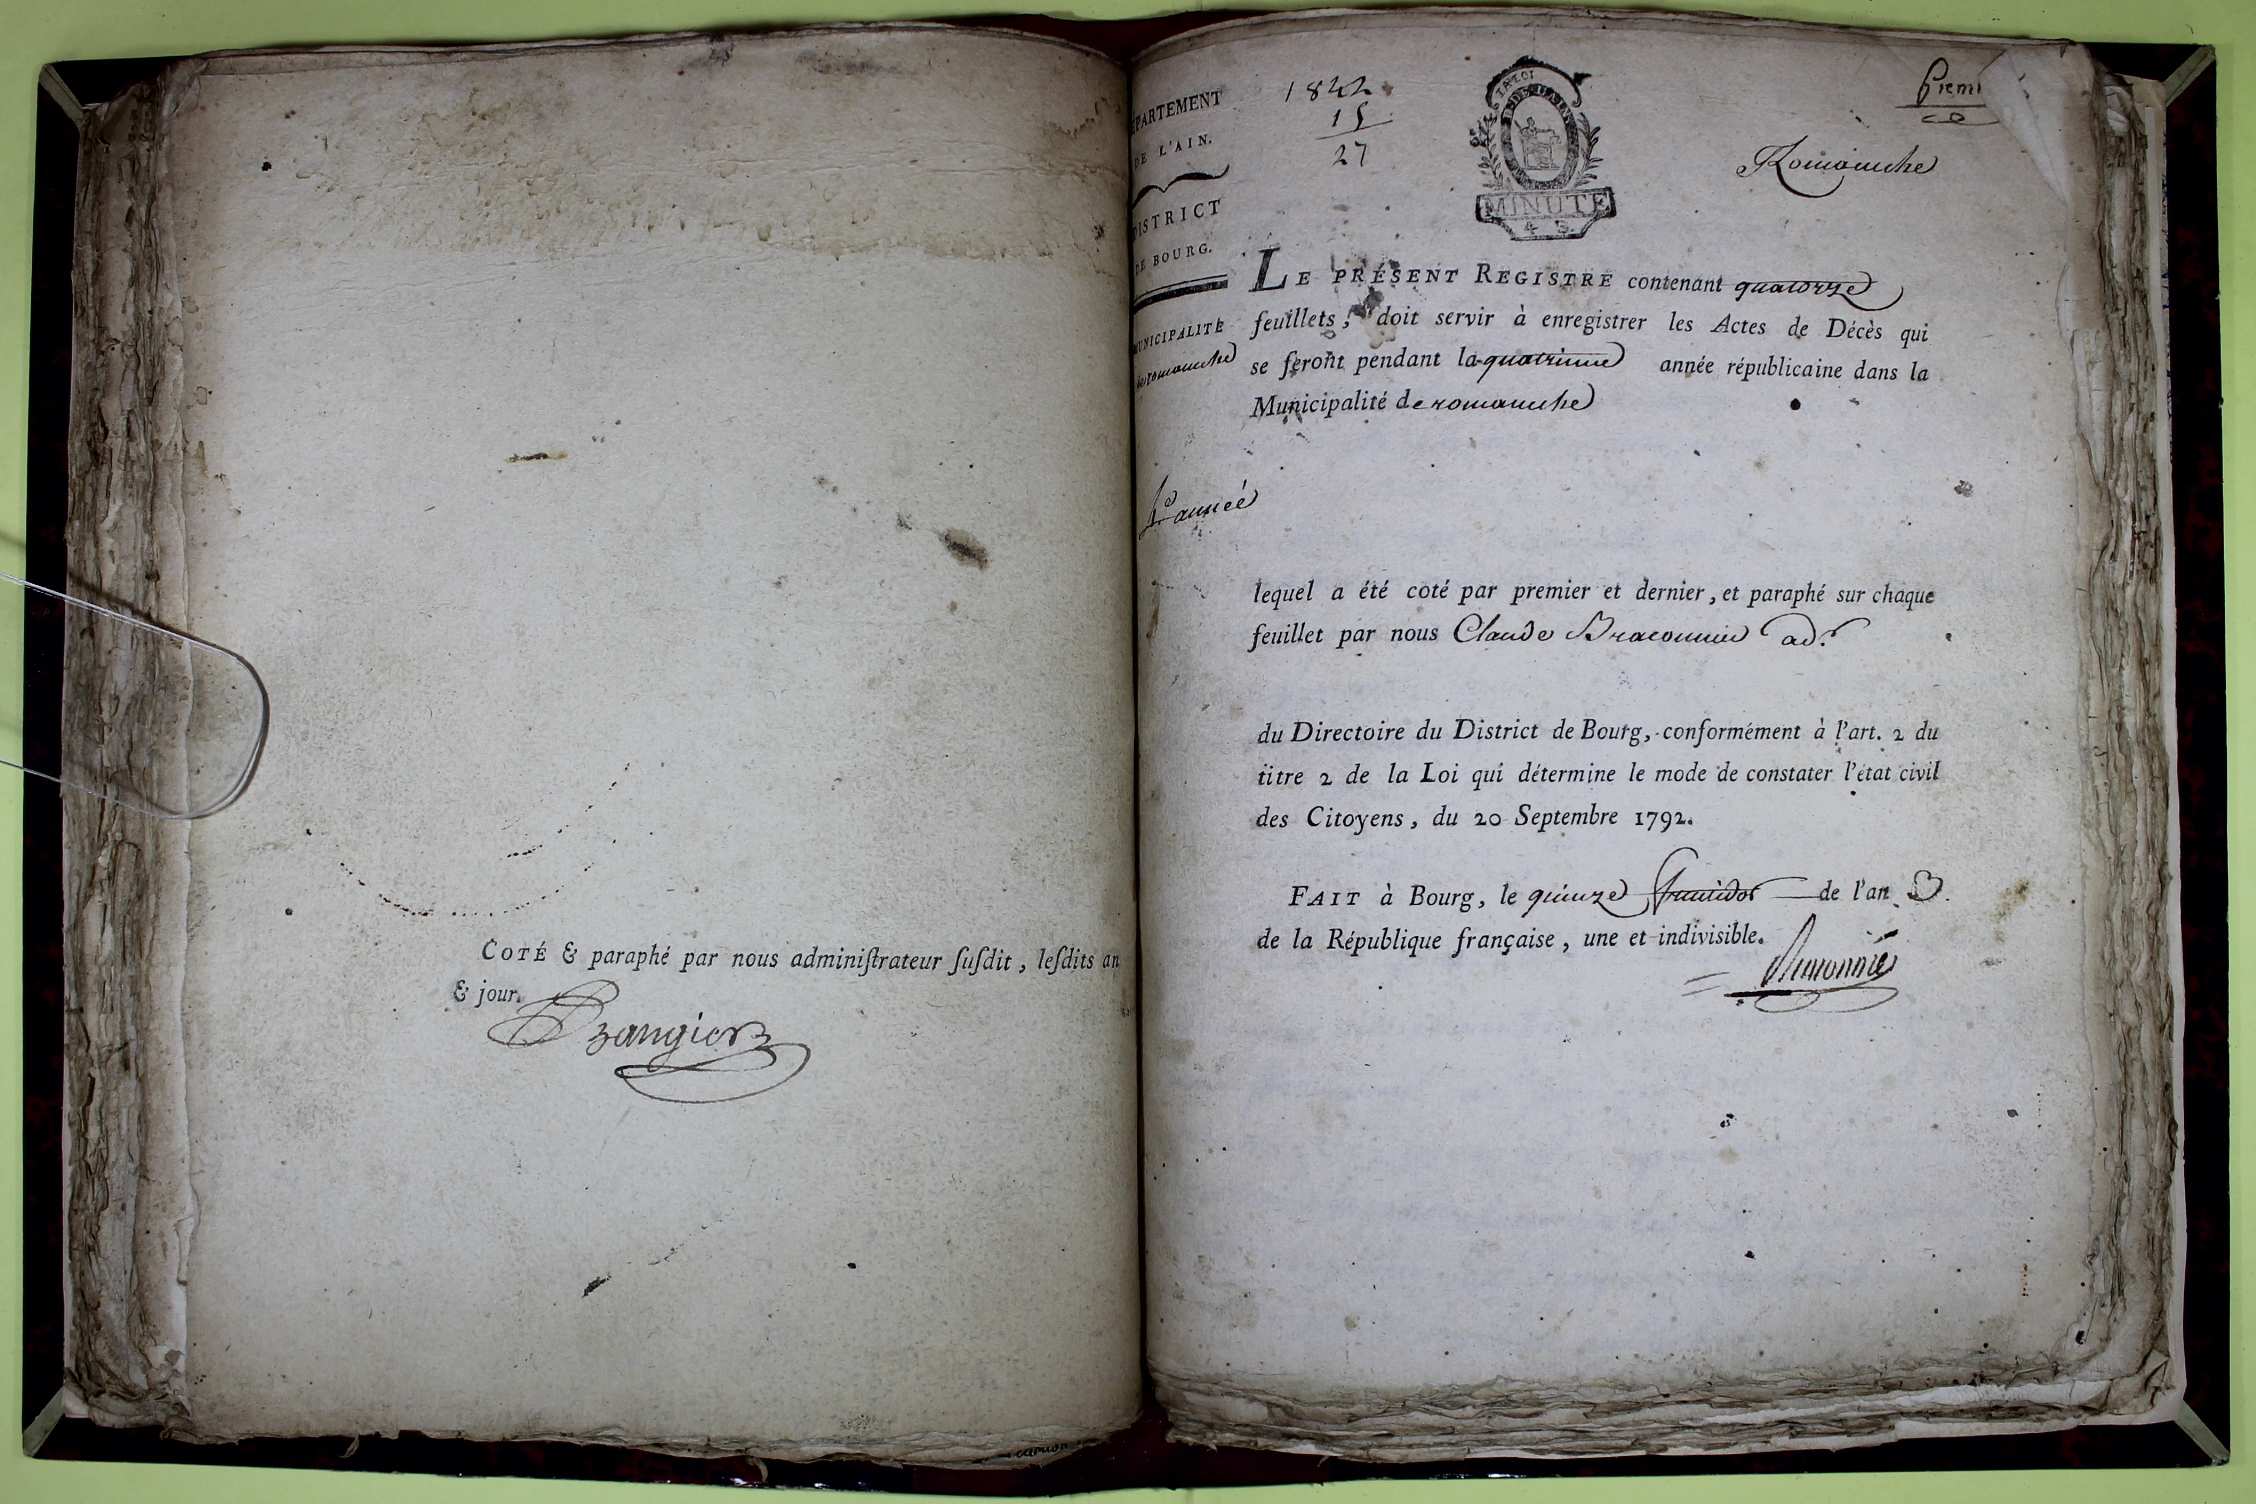 COTÉ & paraphé par nous adminiſtrateur ſuſdit, leſdits an
& jour.
Brangier
PARTEMENT
DE L'AIN.
DISTRICT
DE BOURG.
MUNICIPALITÉ
de romaneche
4e année
1822
15
27
LA LOI
MINUTE
4 S.
Premi
Romaneche
LE PRÉSENT REGISTRE contenant quatorze
feuillets, doit servir à enregistrer les Actes de Décès qui
se feront pendant la quatrieme année républicaine dans la
Municipalité de romaneche
lequel a été coté par premier et dernier, et paraphé sur chaque
feuillet par nous Claude Braconnier adr.
du Directoire du District de Bourg, conformément à l'art. 2 du
titre 2 de la Loi qui détermine le mode de constater l'état civil
des Citoyens, du 20 Septembre 1792.
FAIT à Bourg, le quinze fructidor de l'an 3.
de la République française, une et indivisible.
Braconnier